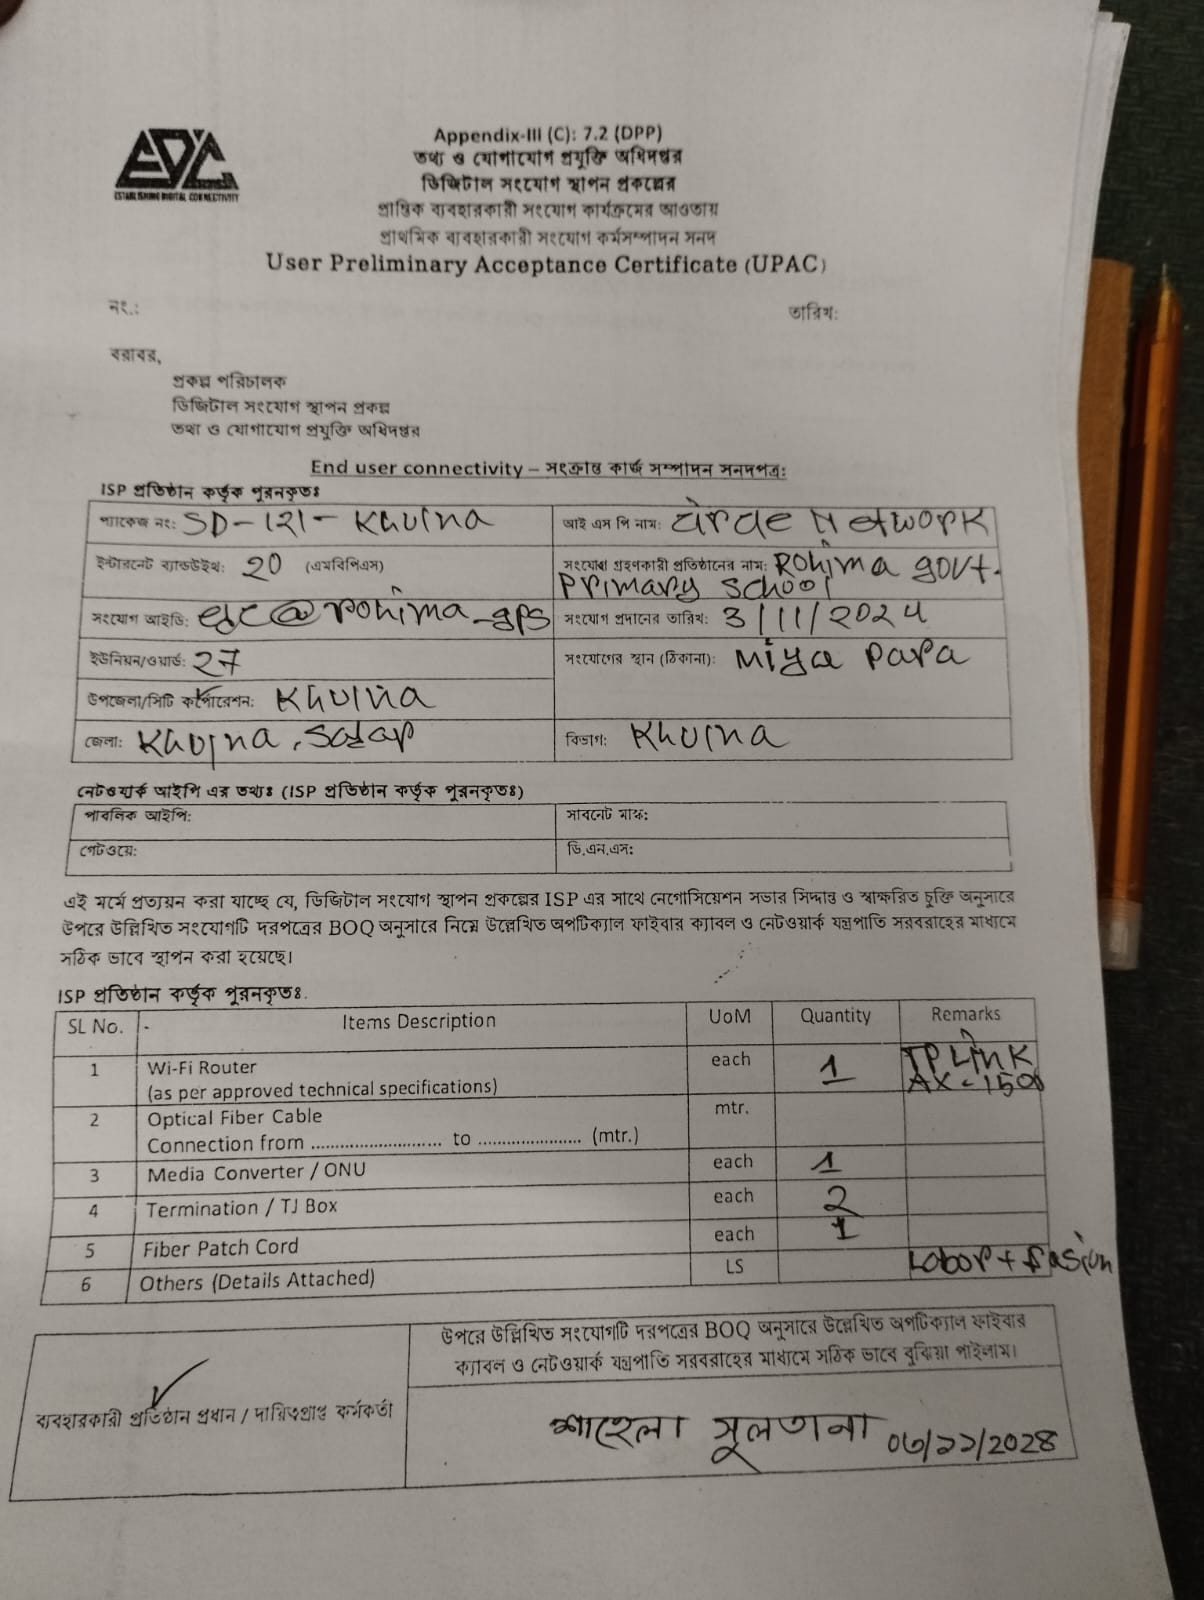 EDC
ESTABLISHING DIGITAL CONNECTIVITY
Appendix-III (C): 7.2 (DPP)
তথ্য ও যোগাযোগ প্রযুক্তি অধিদপ্তর
ডিজিটাল সংযোগ স্থাপন প্রকল্পের
প্রান্তিক ব্যবহারকারী সংযোগ কার্যক্রমের আওতায়
প্রাথমিক ব্যবহারকারী সংযোগ কর্মসম্পাদন সনদ
User Preliminary Acceptance Certificate (UPAC)
নং.: তারিখ:
বরাবর,
প্রকল্প পরিচালক
ডিজিটাল সংযোগ স্থাপন প্রকল্প
তথ্য ও যোগাযোগ প্রযুক্তি অধিদপ্তর
End user connectivity – সংক্রান্ত কার্জ সম্পাদন সনদপত্র:
ISP প্রতিষ্ঠান কর্তৃক পুরনকৃতঃ
প্যাকেজ নং: SD-121-Khulna আই এস পি নাম: Network
ইন্টারনেট ব্যান্ডউইথ: 20 (এমবিপিএস) সংযোগ গ্রহণকারী প্রতিষ্ঠানের নাম: Rohima govt.
Primary school
সংযোগ আইডি: @rohima_gps সংযোগ প্রদানের তারিখ: 3/11/2024
ইউনিয়ন/ওয়ার্ড: 27 সংযোগের স্থান (ঠিকানা): Miya Para
উপজেলা/সিটি কর্পোরেশন: Khulna
জেলা: Khulna, Sadar বিভাগ: Khulna
নেটওয়ার্ক আইপি এর তথ্যঃ (ISP প্রতিষ্ঠান কর্তৃক পুরনকৃতঃ)
পাবলিক আইপি: সাবনেট মাস্ক:
গেটওয়ে: ডি.এন.এস:
এই মর্মে প্রত্যয়ন করা যাচ্ছে যে, ডিজিটাল সংযোগ স্থাপন প্রকল্পের ISP এর সাথে নেগোসিয়েশন সভার সিদ্দান্ত ও স্বাক্ষরিত চুক্তি অনুসারে
উপরে উল্লিখিত সংযোগটি দরপত্রের BOQ অনুসারে নিম্নে উল্লেখিত অপটিক্যাল ফাইবার ক্যাবল ও নেটওয়ার্ক যন্ত্রপাতি সরবরাহের মাধ্যমে
সঠিক ভাবে স্থাপন করা হয়েছে।
ISP প্রতিষ্ঠান কর্তৃক পুরনকৃতঃ.
SL No. Items Description UoM Quantity Remarks
1 Wi-Fi Router each 1 TP Link
(as per approved technical specifications) AX-1500
2 Optical Fiber Cable mtr.
Connection from ........................... to ...................... (mtr.)
3 Media Converter / ONU each 1
4 Termination / TJ Box each 2
5 Fiber Patch Cord each 1
6 Others (Details Attached) LS Labor +
উপরে উল্লিখিত সংযোগটি দরপত্রের BOQ অনুসারে উল্লেখিত অপটিক্যাল ফাইবার
ক্যাবল ও নেটওয়ার্ক যন্ত্রপাতি সরবরাহের মাধ্যমে সঠিক ভাবে বুঝিয়া পাইলাম।
ব্যবহারকারী প্রতিষ্ঠান প্রধান / দায়িত্বপ্রাপ্ত কর্মকর্তা
শাহেলা সুলতানা ০৩/১১/২০২৪